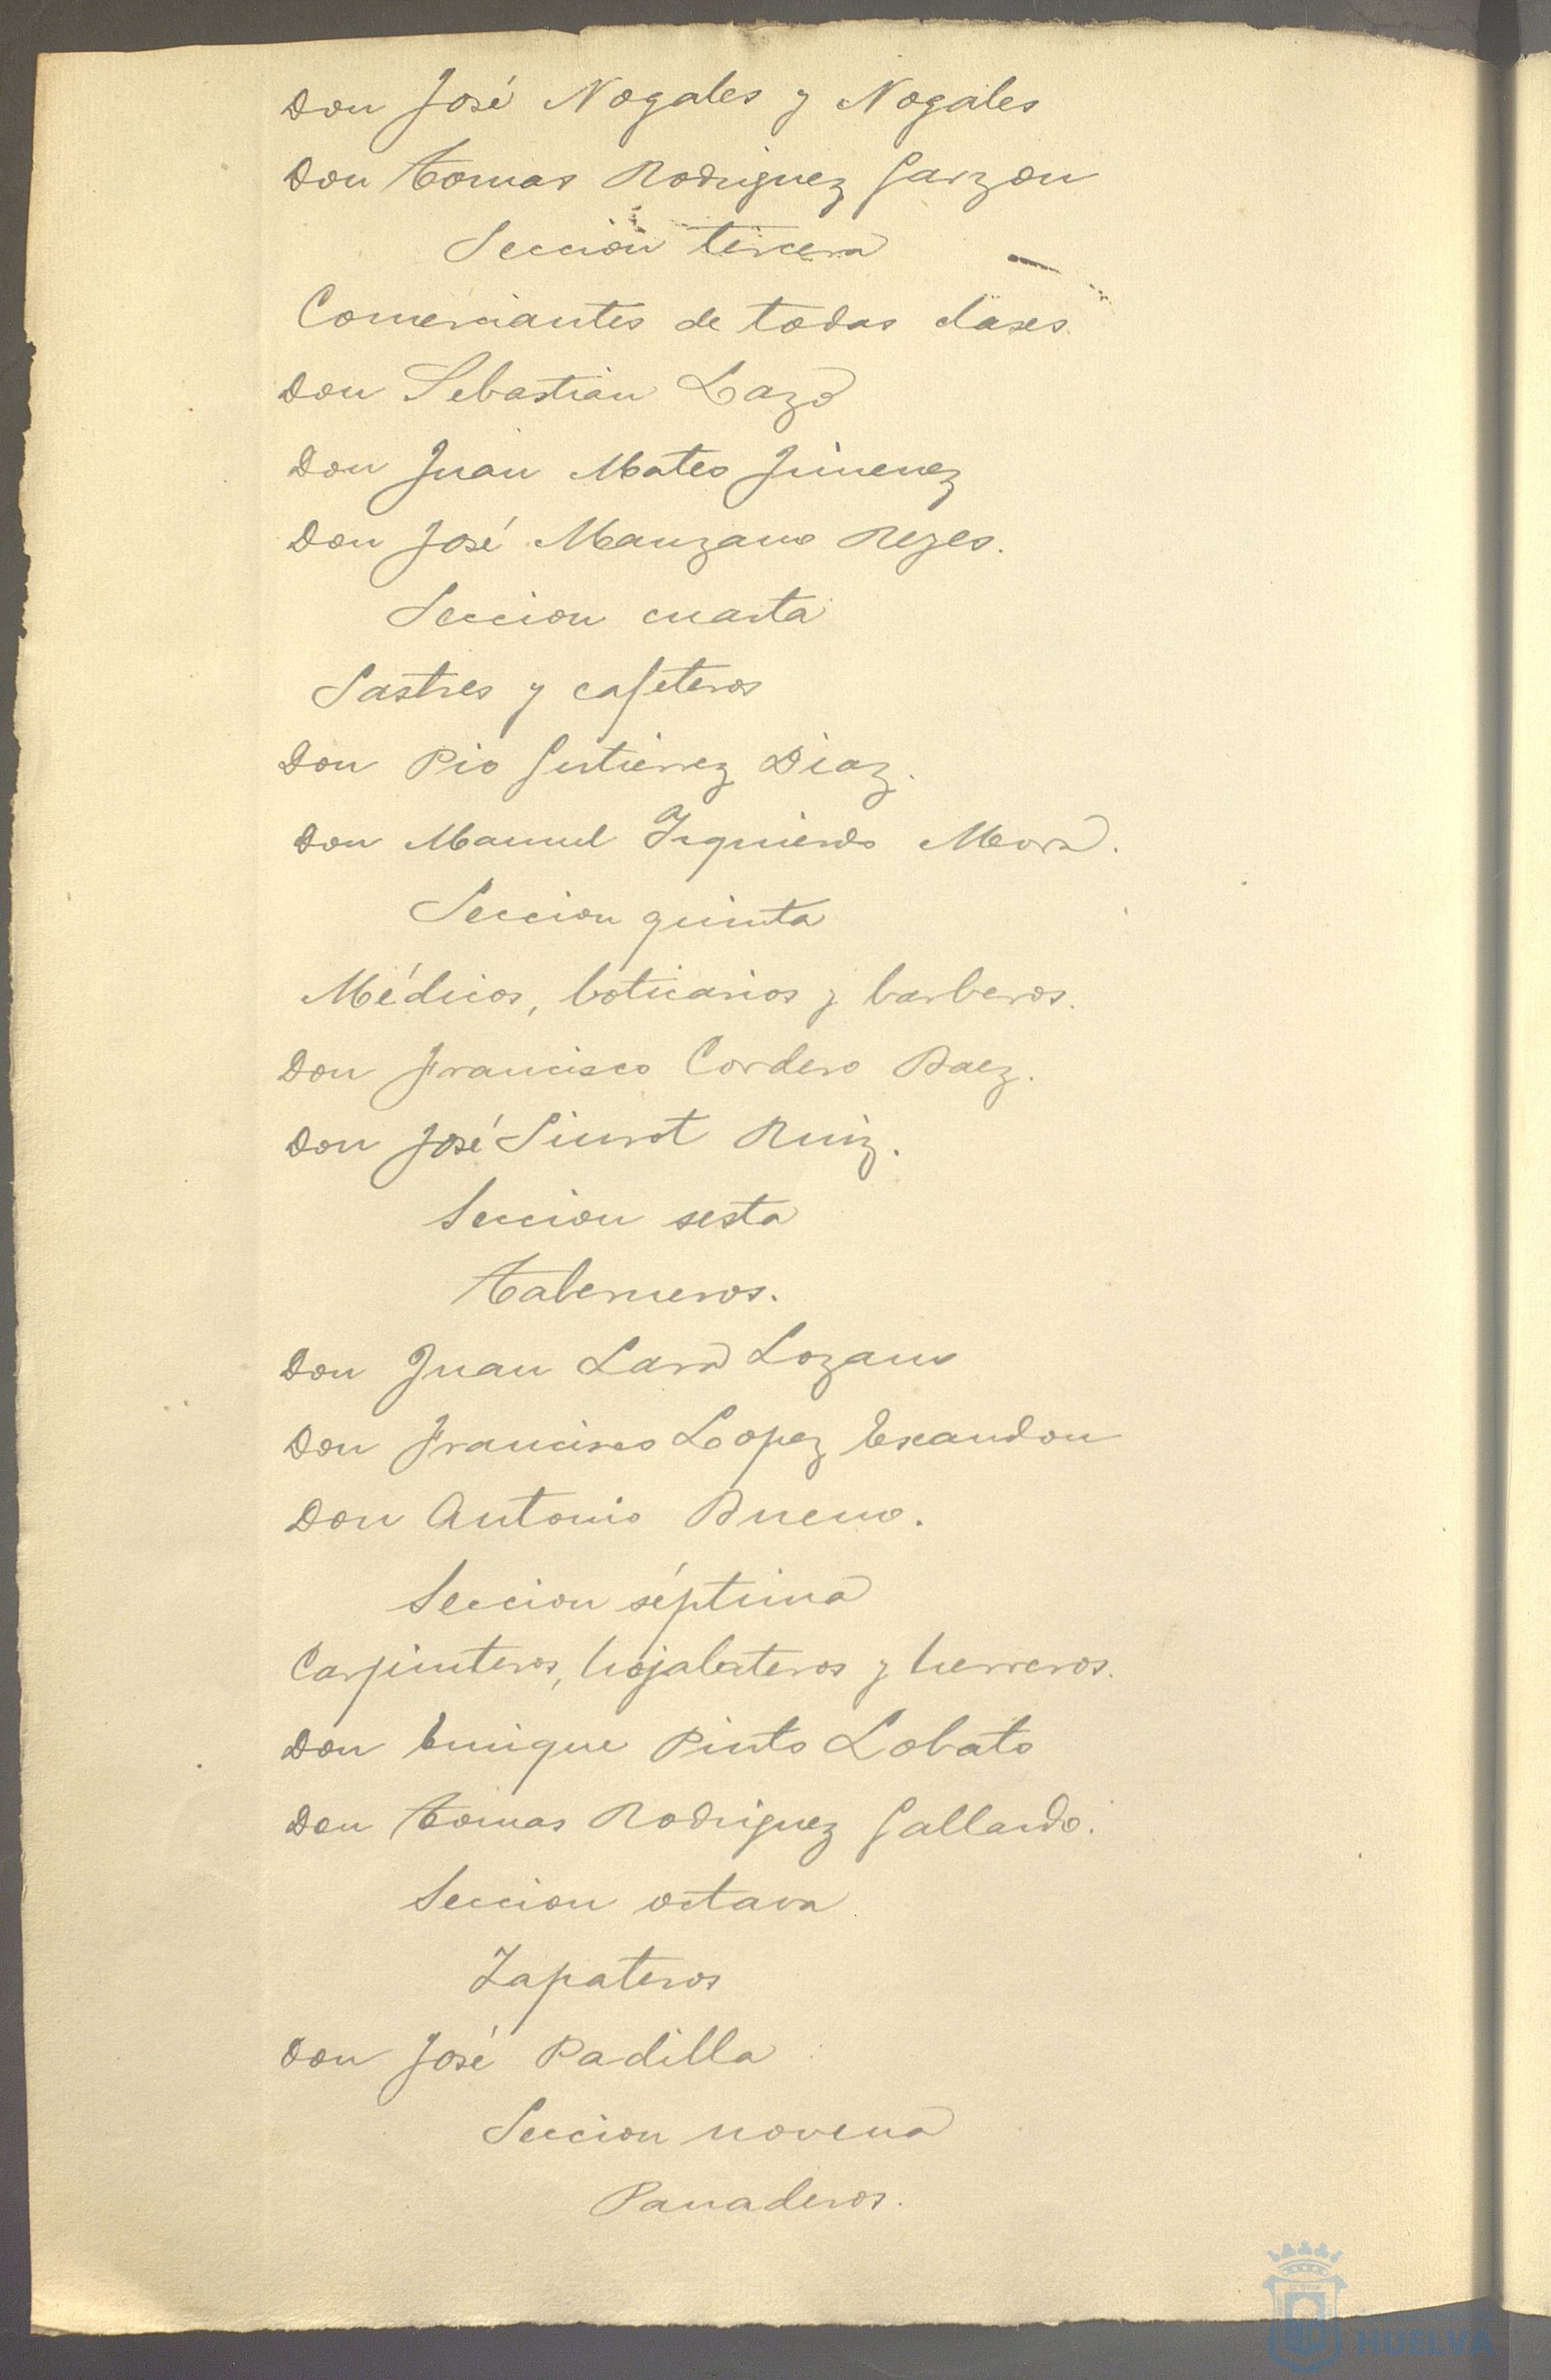 Don José Nogales y Nogales
Don Tomas Rodriguez Garzon
Seccion tercera
Comerciantes de todas clases.
Don Sebastian Lazo
Don Juan Mateo Jimenez
Don José Manzano Reyes.
Seccion cuarta
Sastres y cafeteros
Don Pio Gutierrez Diaz.
Don Manuel Izquierdo Mora.
Seccion quinta
Médicos, boticarios y barberos.
Don Francisco Cordero Baez.
Don José Siurot Ruiz.
Seccion sesta
Taberneros.
Don Juan Lara Lozano
Don Francisco Lopez Escandon
Don Antonio Bueno.
Seccion séptima
Carpinteros, hojalateros y herreros.
Don Enrique Pinto Lobato
Don Tomas Rodriguez Gallardo.
Seccion octava
Zapateros
Don José Padilla
Seccion novena
Panaderos.
HUELVA